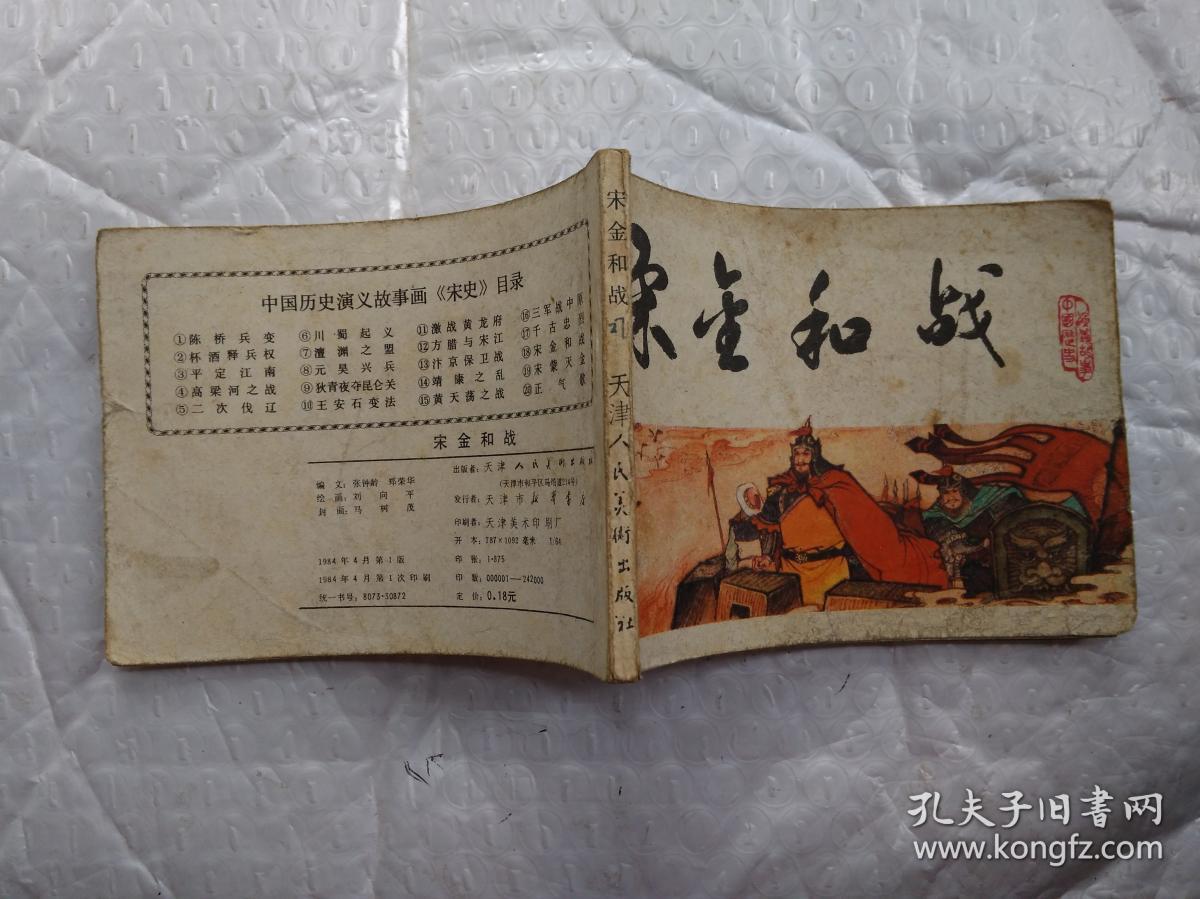 中国历史演义故事画《宋史》目录
①陈桥兵变
②杯酒释兵权
③平定江南
④高梁河之战
⑤二次伐辽
⑥川蜀起义
⑦澶渊之盟
⑧元昊兴兵
⑨狄青夜夺昆仑关
⑩王安石变法
⑪激战黄龙府
⑫方腊与宋江
⑬汴京保卫战
⑭靖康之乱
⑮黄天荡之战
⑯三军战中原
⑰千古忠烈
⑱宋金和战
⑲宋蒙灭金
⑳正气歌
宋金和战
编文：张钟龄 郑荣华
绘画：刘向平
封面：马树茂
1984年4月第1版
1984年4月第1次印刷
统一书号：8073·30872
出版者：天津人民美术出版社
（天津市和平区马场道214号）
发行者：天津市新华书店
印刷者：天津美术印刷厂
开本：787×1092毫米 1/64
印张：1·875
印数：000001—242000
定价：0.18元
宋金和战 天津人民美術出版社
宋金和战
孔夫子旧书网
www.kongfz.com